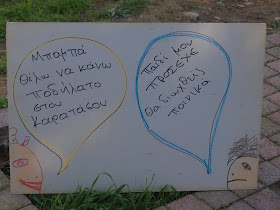 Μπαμπά
θέλω να κάνω
ποδήλατο
στου
Καρατάσου
παιδί μου
πρόσεχε
θα διωχθείς
ποινικά